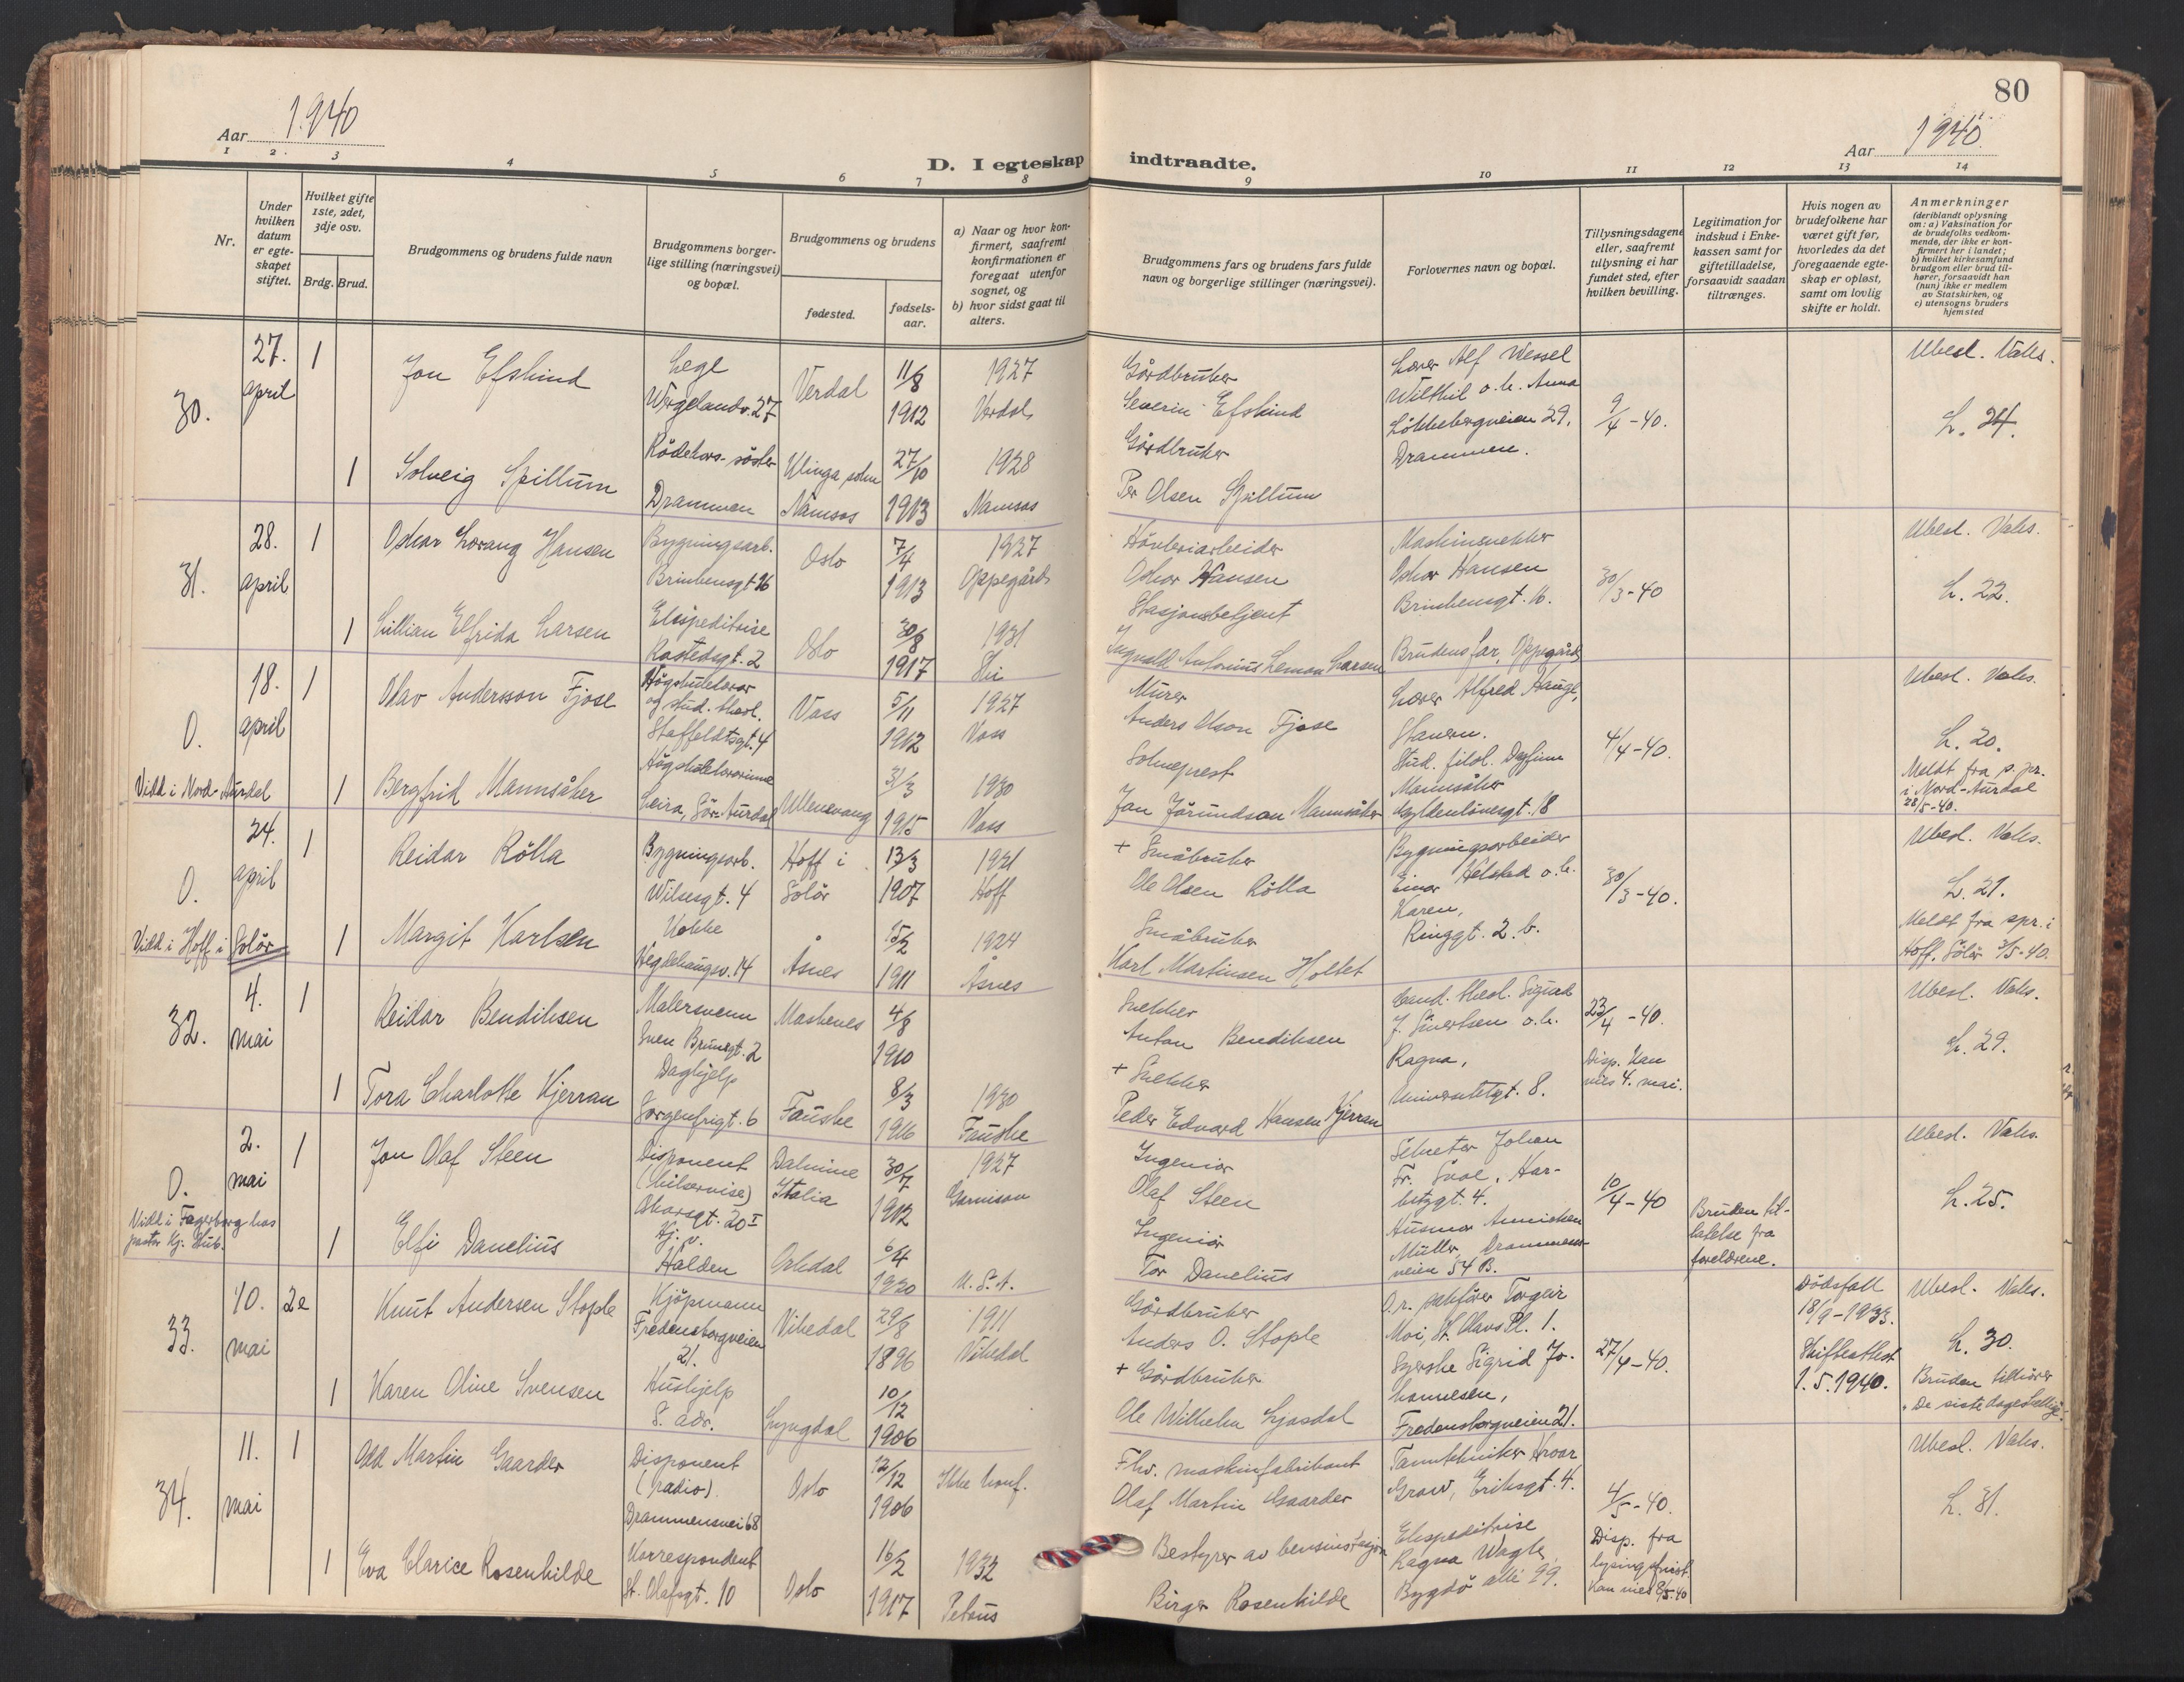 80
Aar 1940
Aar 1940.
D. I egteskap indtraadte.
1 2. 3 4 5 6 7 8 9 10 11 12 13 14
Nr.
Under hvilken datum er egte-skapet stiftet.
Hvilket gifte 1ste, 2det, 3dje osv.
Brdg. Brud.
Brudgommens og brudens fulde navn
Brudgommens borger-lige stilling (næringsvei) og bopæl.
Brudgommens og brudens
fødested.
fødsels-aar.
a) Naar og hvor kon-firmert, saafremt konfirmationen er foregaat utenfor sognet, og
b) hvor sidst gaat til alters.
Brudgommens fars og brudens fars fulde navn og borgerlige stillinger (næringsvei).
Forlovernes navn og bopæl.
Tillysningsdagene eller, saafremt tillysning ei har fundet sted, efter hvilken bevilling.
Legitimation for indskud i Enke-kassen samt for giftetilladelse, forsaavidt saadan tiltrænges.
Hvis nogen av brudefolkene har været gift før, hvorledes da det foregaaende egte-skap er opløst, samt om lovlig skifte er holdt.
Anmerkninger
(deriblandt oplysning om: a) Vaksination for de brudefolks vedkom-mende, der ikke er kon-firmert her i landet; b) hvilket kirkesamfund brudgom eller brud til-hører, forsaavidt han (hun) ikke er medlem av Statskirken, og c) utensogns bruders hjemsted
30.
27. april
1
Jon Efskind
Lege
Wergelandsv. 27
Verdal
11/8 1912
1927
Verdal
Gårdbruker
Severin Efskind
Lærer Alf Wessel
Wilthil o.h. Anna
Løkkebergveien 29,
Drammen.
9/4-40.
Ubesl. Vaks.
L. 24.
1
Solveig Spillum
Rødekors-søster
Drammen
Klinga sokn
Namsos
27/10 1913
1928
Namsos
Gårdbruker
Per Olsen Spillum
31.
28. april
1
Oskar Lorang Hansen
Bygningsarb.
Brinkensgt 16
Oslo
7/4 1913
1927
Oppegård
Oskar Hansen
Maskinsnekker
Oskar Hansen
Brinkensgt. 16.
30/3-40
Ubesl. Vaks.
L. 22.
1
Lillian Elfrida Larsen
Ekspeditrise
Rostedsgt. 2
Oslo
30/8 1917
1931
Ski
Stasjonsbetjent
Ingvald Antonius Leman Larsen
Brudens far, Oppegård
0.
18. april
1
Olav Andersson Fjose
Høgskulelærar
og stud. theol.
Staffeldtsgt. 4
Voss
5/11 1912
1927
Voss
Murer
Anders Olson Fjose
Lærer Alfred Hauge,
Stud. filol. Dagfinn
Mannsåker
Gyldenløvesgt. 18
4/4-40.
Ubesl. Vaks.
L. 20.
Meldt fra s. pr.
i Nord-Aurdal
28/5-40.
Viedd i Nord-Aurdal
1
Bergfrid Mannsåker
Høgskulelærarinne
Leira, Sør-Aurdal
Ullensvang
31/3 1915
1930
Voss
Sokneprest
Jan Jørundson Mannsåker
0.
24. april
1
Reidar Rølla
Bygningsarb.
Wilsesgt. 4
Hoff i
Solør
13/3 1907
1921
Hoff
+ Småbruker
Ole Olsen Rølla
Bygningsarbeider
Einar Helstad o.h.
Karen,
Ringgt. 2. b.
30/3-40.
Ubesl. Vaks.
L. 21.
Meldt fra spr. i
Hoff, Solør 3/5-40.
Viedd i Hoff i Solør
1
Margit Karlsen
Kokke
Hegdehaugsv. 14
Åsnes
15/2 1911
1924
Åsnes
Småbruker
Karl Martinsen Holtet
32.
4. mai
1
Reidar Bendiksen
Malersvenn
Sven Brunsgt. 2
Maskenes
4/8 1910
Snekker
Anton Bendiksen
Cand. theol. Sigurd
J. Sivertsen o.h.
Ragna,
Universitetgt. 8.
23/4-40.
Disp. Kan
vies 4. mai.
Ubesl. Vaks.
L. 29.
1
Tora Charlotte Kjerran
Daghjelp
Sorgenfrigt. 6
Fauske
8/3 1916
1930
Fauske
+ Snekker
Peder Edvard Hansen Kjerran
0.
2. mai
1
Jon Olaf Steen
Disponent
(bilservise)
Oskarsgt. 20 I
Dalmine
Italia
30/7 1912
1927
Garnison
Ingeniør
Olaf Steen
Sekretær Johan
Fr. Svae, Har-
bitzgt. 4.
Husmor Annichen
Müller, Drammens-
veien 54 B.
10/4-40
Bruden til-
latelse fra
foreldrene.
Ubesl. Vaks.
L. 25.
Viedd i Fagerborg hos
pastor Kj. Stub.
1
Elfi Danelius
Hj. v.
Halden
Orkdal
6/4 1920
U.S.A.
Ingeniør
Tor Danelius
33.
10. mai
2e
Knut Andersen Stople
Kjøpmann
Fredensborgveien
21.
Vikedal
29/8 1896
1911
Vikedal
Gårdbruker
Anders O. Stople
O.r. sakfører Torgeir
Moi, St. Olavs Pl. 1.
Syerske Sigrid Jo-
hannesen,
Fredensborgveien 21.
27/4-40.
Dødsfall
18/9-1933.
Skifteattest
1.5.1940.
Ubesl. Vaks.
L. 30.
Bruden tilhører
"De siste dagers hellige".
1
Karen Oline Svensen
Hushjelp
S. adr.
Lyngdal
10/12 1906
+ Gårdbruker
Ole Wilhelm Ljosdal
34.
11. mai
1
Odd Martin Gaarder
Disponent
(radio).
Drammensvei 68
Oslo
12/12 1906
Ikke konf.
Fhv. maskinfabrikant
Olaf Martin Gaarder
Tanntekniker Hroar
Grow, Eriksgt. 4.
4/5-40.
Disp. fra
lysingsfrist
Kan vies 8/5-40
Ubesl. Vaks.
L. 31.
1
Eva Clarice Rosenkilde
Korrespondent
St. Olafsgt. 10
Oslo
16/2 1917
1932
Petrus
Bestyrer av bensinstasjon
Birger Rosenkilde
Ekspeditrise
Ragna Wagle,
Bygdø alle 99.